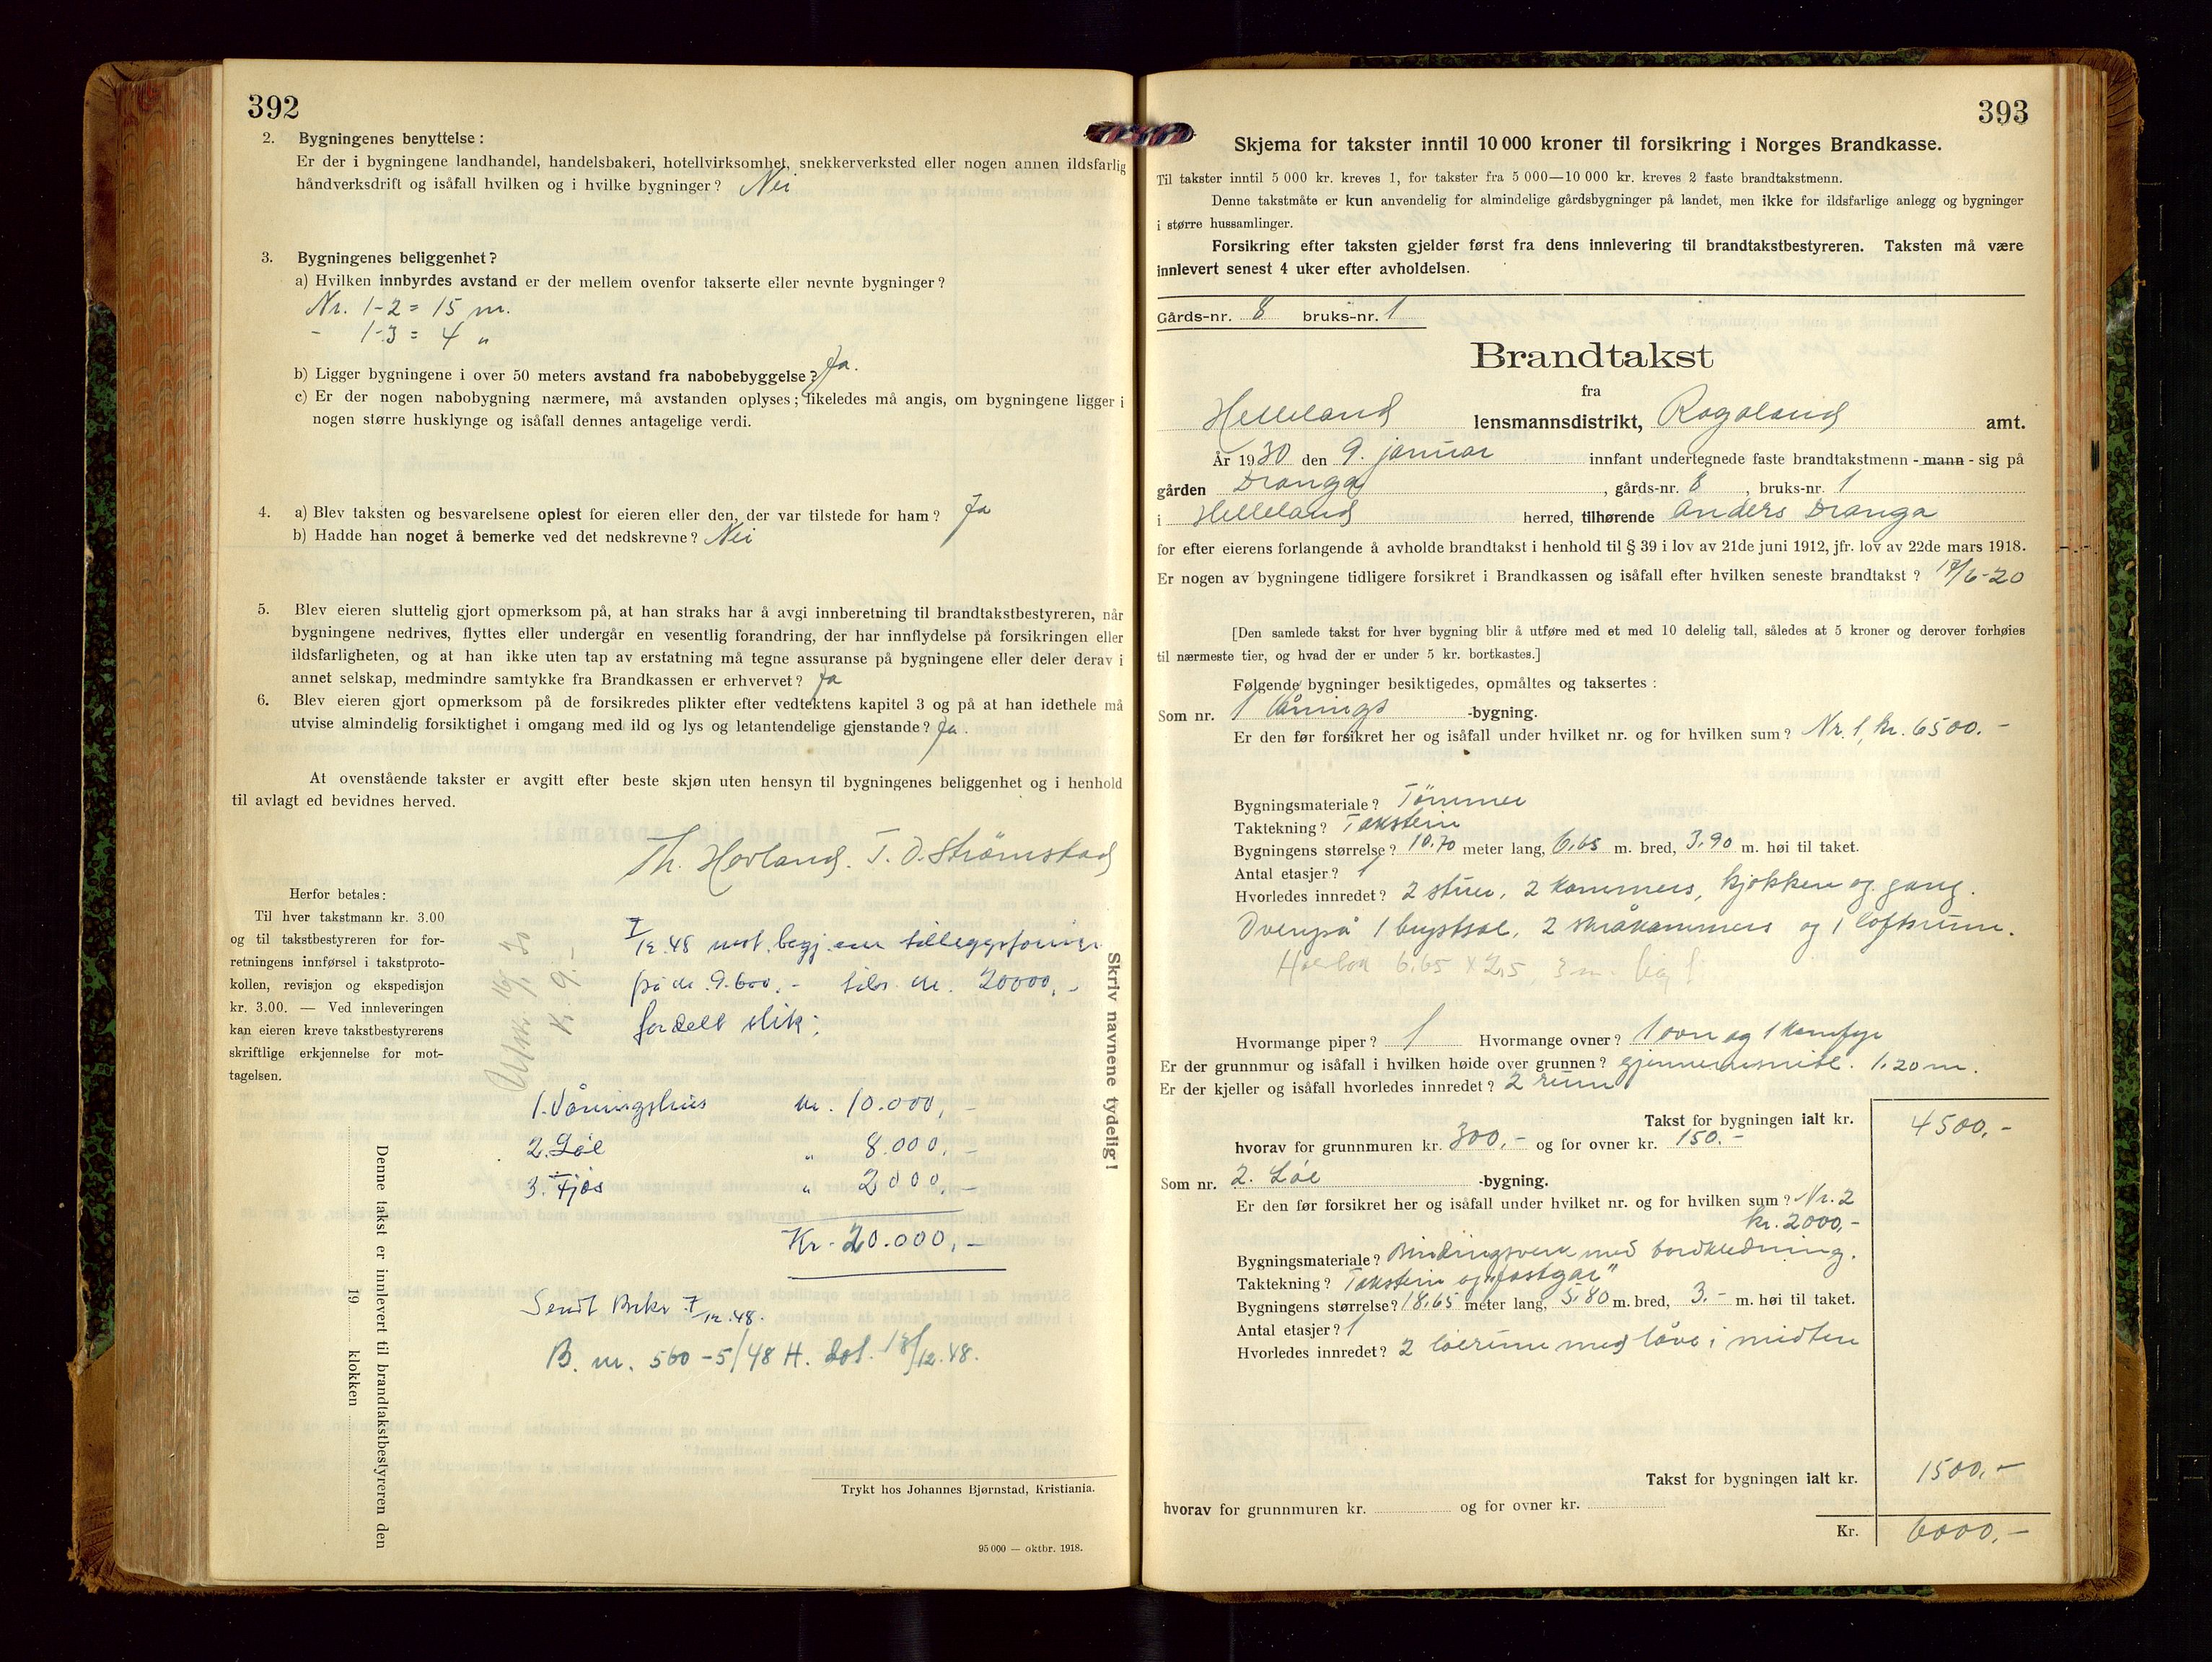 392
2. Bygningenes benyttelse:
Er der i bygningene landhandel, handelsbakeri, hotellvirksomhet, snekkerverksted eller nogen annen ildsfarlig
håndverksdrift og isåfall hvilken og i hvilke bygninger? Nei
3. Bygningenes beliggenhet?
a) Hvilken innbyrdes avstand er der mellem ovenfor takserte eller nevnte bygninger?
Nr. 1-2 = 15 m.
- 1-3 = 4 "
b) Ligger bygningene i over 50 meters avstand fra nabobebyggelse? Ja.
c) Er der nogen nabobygning nærmere, må avstanden oplyses; likeledes må angis, om bygningene ligger i
nogen større husklynge og isåfall dennes antagelige verdi.
4. a) Blev taksten og besvarelsene oplest for eieren eller den, der var tilstede for ham? Ja
b) Hadde han noget å bemerke ved det nedskrevne? Nei
5. Blev eieren sluttelig gjort opmerksom på, at han straks har å avgi innberetning til brandtakstbestyreren, når
bygningene nedrives, flyttes eller undergår en vesentlig forandring, der har innflydelse på forsikringen eller
ildsfarligheten, og at han ikke uten tap av erstatning må tegne assuranse på bygningene eller deler derav i
annet selskap, medmindre samtykke fra Brandkassen er erhvervet? Ja
6. Blev eieren gjort opmerksom på de forsikredes plikter efter vedtektens kapitel 3 og på at han idethele må
utvise almindelig forsiktighet i omgang med ild og lys og letantendelige gjenstande? Ja.
At ovenstående takster er avgitt efter beste skjøn uten hensyn til bygningenes beliggenhet og i henhold
til avlagt ed bevidnes herved.
Th. Hovland. T. O. Strømstad
Herfor betales:
Til hver takstmann kr. 3.00
og til takstbestyreren for for-
retningens innførsel i takstproto-
kollen, revisjon og ekspedisjon
kr. 3.00. — Ved innleveringen
kan eieren kreve takstbestyrerens
skriftlige erkjennelse for mot-
tagelsen.
Denne takst er innlevert til brandtakstbestyreren den
19 klokken
16/1 30
K. 9.-
7/12.48 mot. begj. om tilleggsforsikr.
på kr. 9.600.- tils. kr. 20000.-
fordelt slik:
1. Våningshus kr. 10.000,-
2. Løe " 8.000.-
3. Fjøs " 2000.-
Kr. 20.000,-
Sendt Brkr 7/12.48.
B. nr. 560-5/48 H. dat. 18/12.48.
Skriv navnene tydelig!
Trykt hos Johannes Bjørnstad, Kristiania.
95 000 — oktbr. 1918.
393
Skjema for takster inntil 10 000 kroner til forsikring i Norges Brandkasse.
Til takster inntil 5 000 kr. kreves 1, for takster fra 5 000—10 000 kr. kreves 2 faste brandtakstmenn.
Denne takstmåte er kun anvendelig for almindelige gårdsbygninger på landet, men ikke for ildsfarlige anlegg og bygninger
i større hussamlinger.
Forsikring efter taksten gjelder først fra dens innlevering til brandtakstbestyreren. Taksten må være
innlevert senest 4 uker efter avholdelsen.
Gårds-nr. 8 bruks-nr. 1
Brandtakst
fra
Helleland lensmannsdistrikt, Rogaland amt.
År 1930 den 9. januar innfant undertegnede faste brandtakstmenn - mann - sig på
gården Dranga, gårds-nr. 8, bruks-nr. 1
i Helleland herred, tilhørende Anders Dranga
for efter eierens forlangende å avholde brandtakst i henhold til § 39 i lov av 21de juni 1912, jfr. lov av 22de mars 1918.
Er nogen av bygningene tidligere forsikret i Brandkassen og isåfall efter hvilken seneste brandtakst? 17/6-20
[Den samlede takst for hver bygning blir å utføre med et med 10 delelig tall, således at 5 kroner og derover forhøies
til nærmeste tier, og hvad der er under 5 kr. bortkastes.]
Følgende bygninger besiktigedes, opmåltes og taksertes:
Som nr. 1 Vånings -bygning.
Er den før forsikret her og isåfall under hvilket nr. og for hvilken sum? Nr. 1, kr. 6500.-
Bygningsmateriale? Tømmer
Taktekning? Takstein
Bygningens størrelse? 10.70 meter lang, 6.65 m. bred, 3.90 m. høi til taket.
Antal etasjer? 1
Hvorledes innredet? 2 stuer, 2 kammers, kjøkken og gang.
Ovenpå 1 brystsal, 2 skråkammers og 1 loftsrum.
6.65 x 2,5, 3 m.
Hvormange piper? 1 Hvormange ovner? 1 ovn og 1 komfyr
Er der grunnmur og isåfall i hvilken høide over grunnen? gjennemsnitl. 1.20 m.
Er der kjeller og isåfall hvorledes innredet? 2 rum
Takst for bygningen ialt kr. 4500,-
hvorav for grunnmuren kr. 300,- og for ovner kr. 150.-
Som nr. 2. Løe -bygning.
Er den før forsikret her og isåfall under hvilket nr. og for hvilken sum? Nr. 2
kr. 2000,-
Bygningsmateriale? Bindingsverk med bordkledning.
Taktekning? Takstein og
Bygningens størrelse? 18.65 meter lang, 5.80 m. bred, 3.- m. høi til taket.
Antal etasjer? 1
Hvorledes innredet? 2 løerum med låve i midten
Takst for bygningen ialt kr. 1500.-
hvorav for grunnmuren kr. og for ovner kr.
Kr. 6000.-